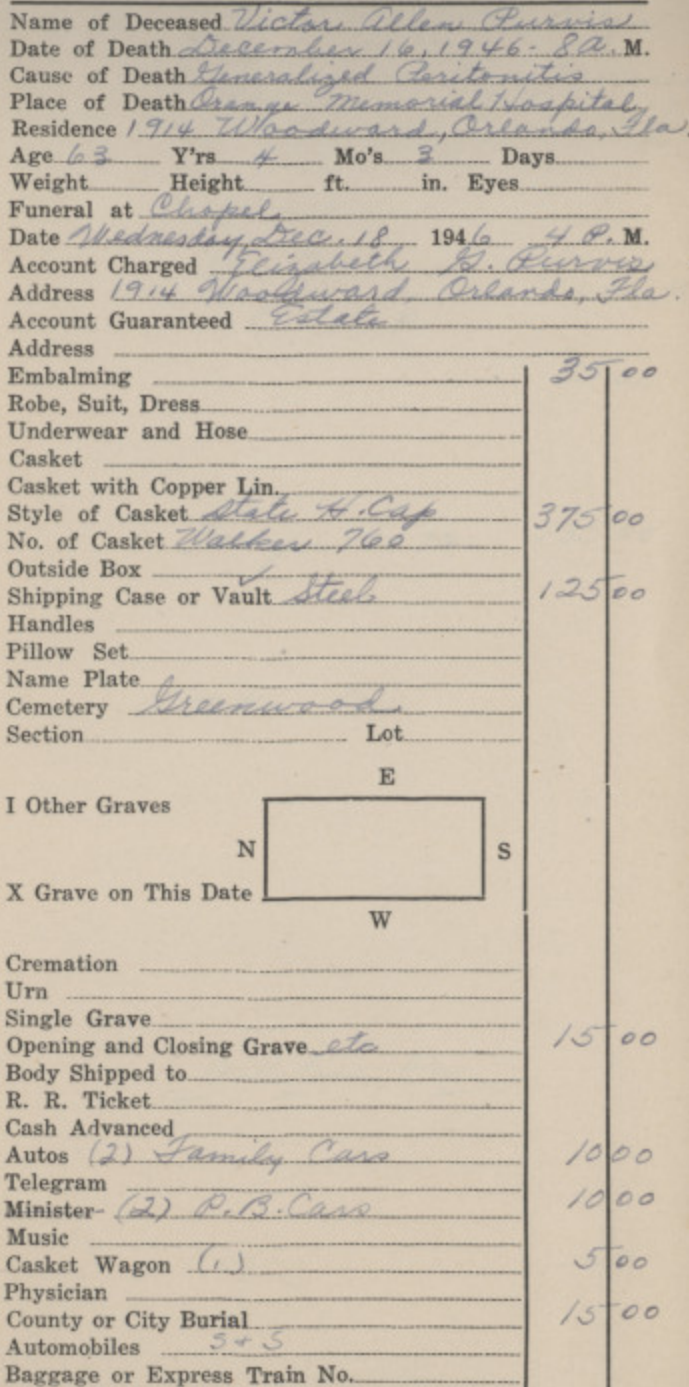 Name of Deceased Victor Allen Purvis
Date of Death December 16, 1946 - 8 A. M.
Cause of Death Generalized Peritonitis
Place of Death Orange Memorial Hospital
Residence 1914 Woodward, Orlando, Fla.
Age 63 Y'rs 4 Mo's 3 Days
Weight Height ft. in. Eyes
Funeral at Chapel
Date Wednesday, Dec. 18 1946 4 P. M.
Account Charged Elizabeth G. Purvis
Address 1914 Woodward, Orlando, Fla.
Account Guaranteed Estate
Address
Embalming 35 00
Robe, Suit, Dress
Underwear and Hose
Casket
Casket with Copper Lin.
Style of Casket State H. Cap 375 00
No. of Casket Walker 760
Outside Box
Shipping Case or Vault ✓ Steel 125 00
Handles
Pillow Set
Name Plate
Cemetery Greenwood
Section Lot
E
I Other Graves
N S
X Grave on This Date
W
Cremation
Urn
Single Grave
Opening and Closing Grave etc 15 00
Body Shipped to
R. R. Ticket
Cash Advanced
Autos (2) Family Cars 10 00
Telegram
Minister- (2) P.B. Cars 10 00
Music
Casket Wagon (1) 5 00
Physician
County or City Burial 15 00
Automobiles S + S
Baggage or Express Train No.